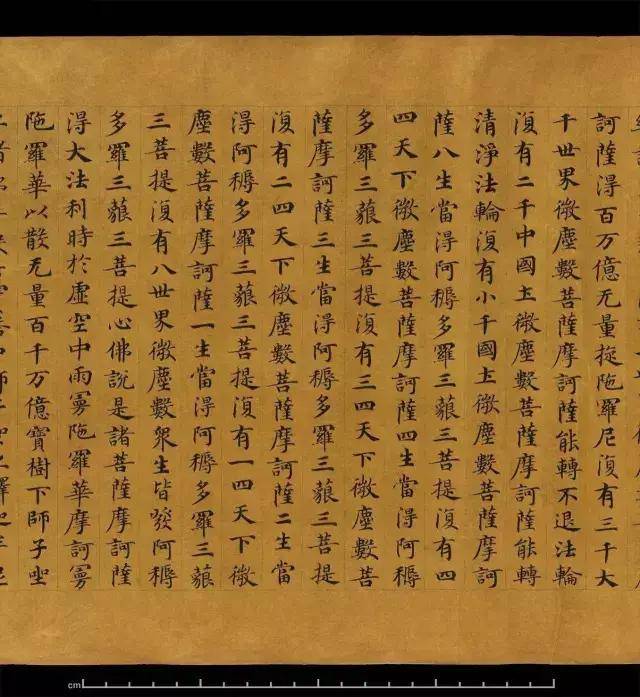 訶薩得百万億无量旋陁羅尼復有三千大
千世界微塵數菩薩摩訶薩能轉不退法輪
復有二千中國土微塵數菩薩摩訶薩能轉
清淨法輪復有小千國土微塵數菩薩摩訶
薩八生當得阿耨多羅三藐三菩提復有四
四天下微塵數菩薩摩訶薩四生當得阿耨
多羅三藐三菩提復有三四天下微塵數菩
薩摩訶薩三生當得阿耨多羅三藐三菩提
復有二四天下微塵數菩薩摩訶薩二生當
得阿耨多羅三藐三菩提復有一四天下微
塵數菩薩摩訶薩一生當得阿耨多羅三藐
三菩提復有八世界微塵數衆生皆發阿耨
多羅三藐三菩提心佛說是諸菩薩摩訶薩
得大法利時於虛空中雨曼陁羅華摩訶曼
陁羅華以散无量百千万億寶樹下師子座
cm